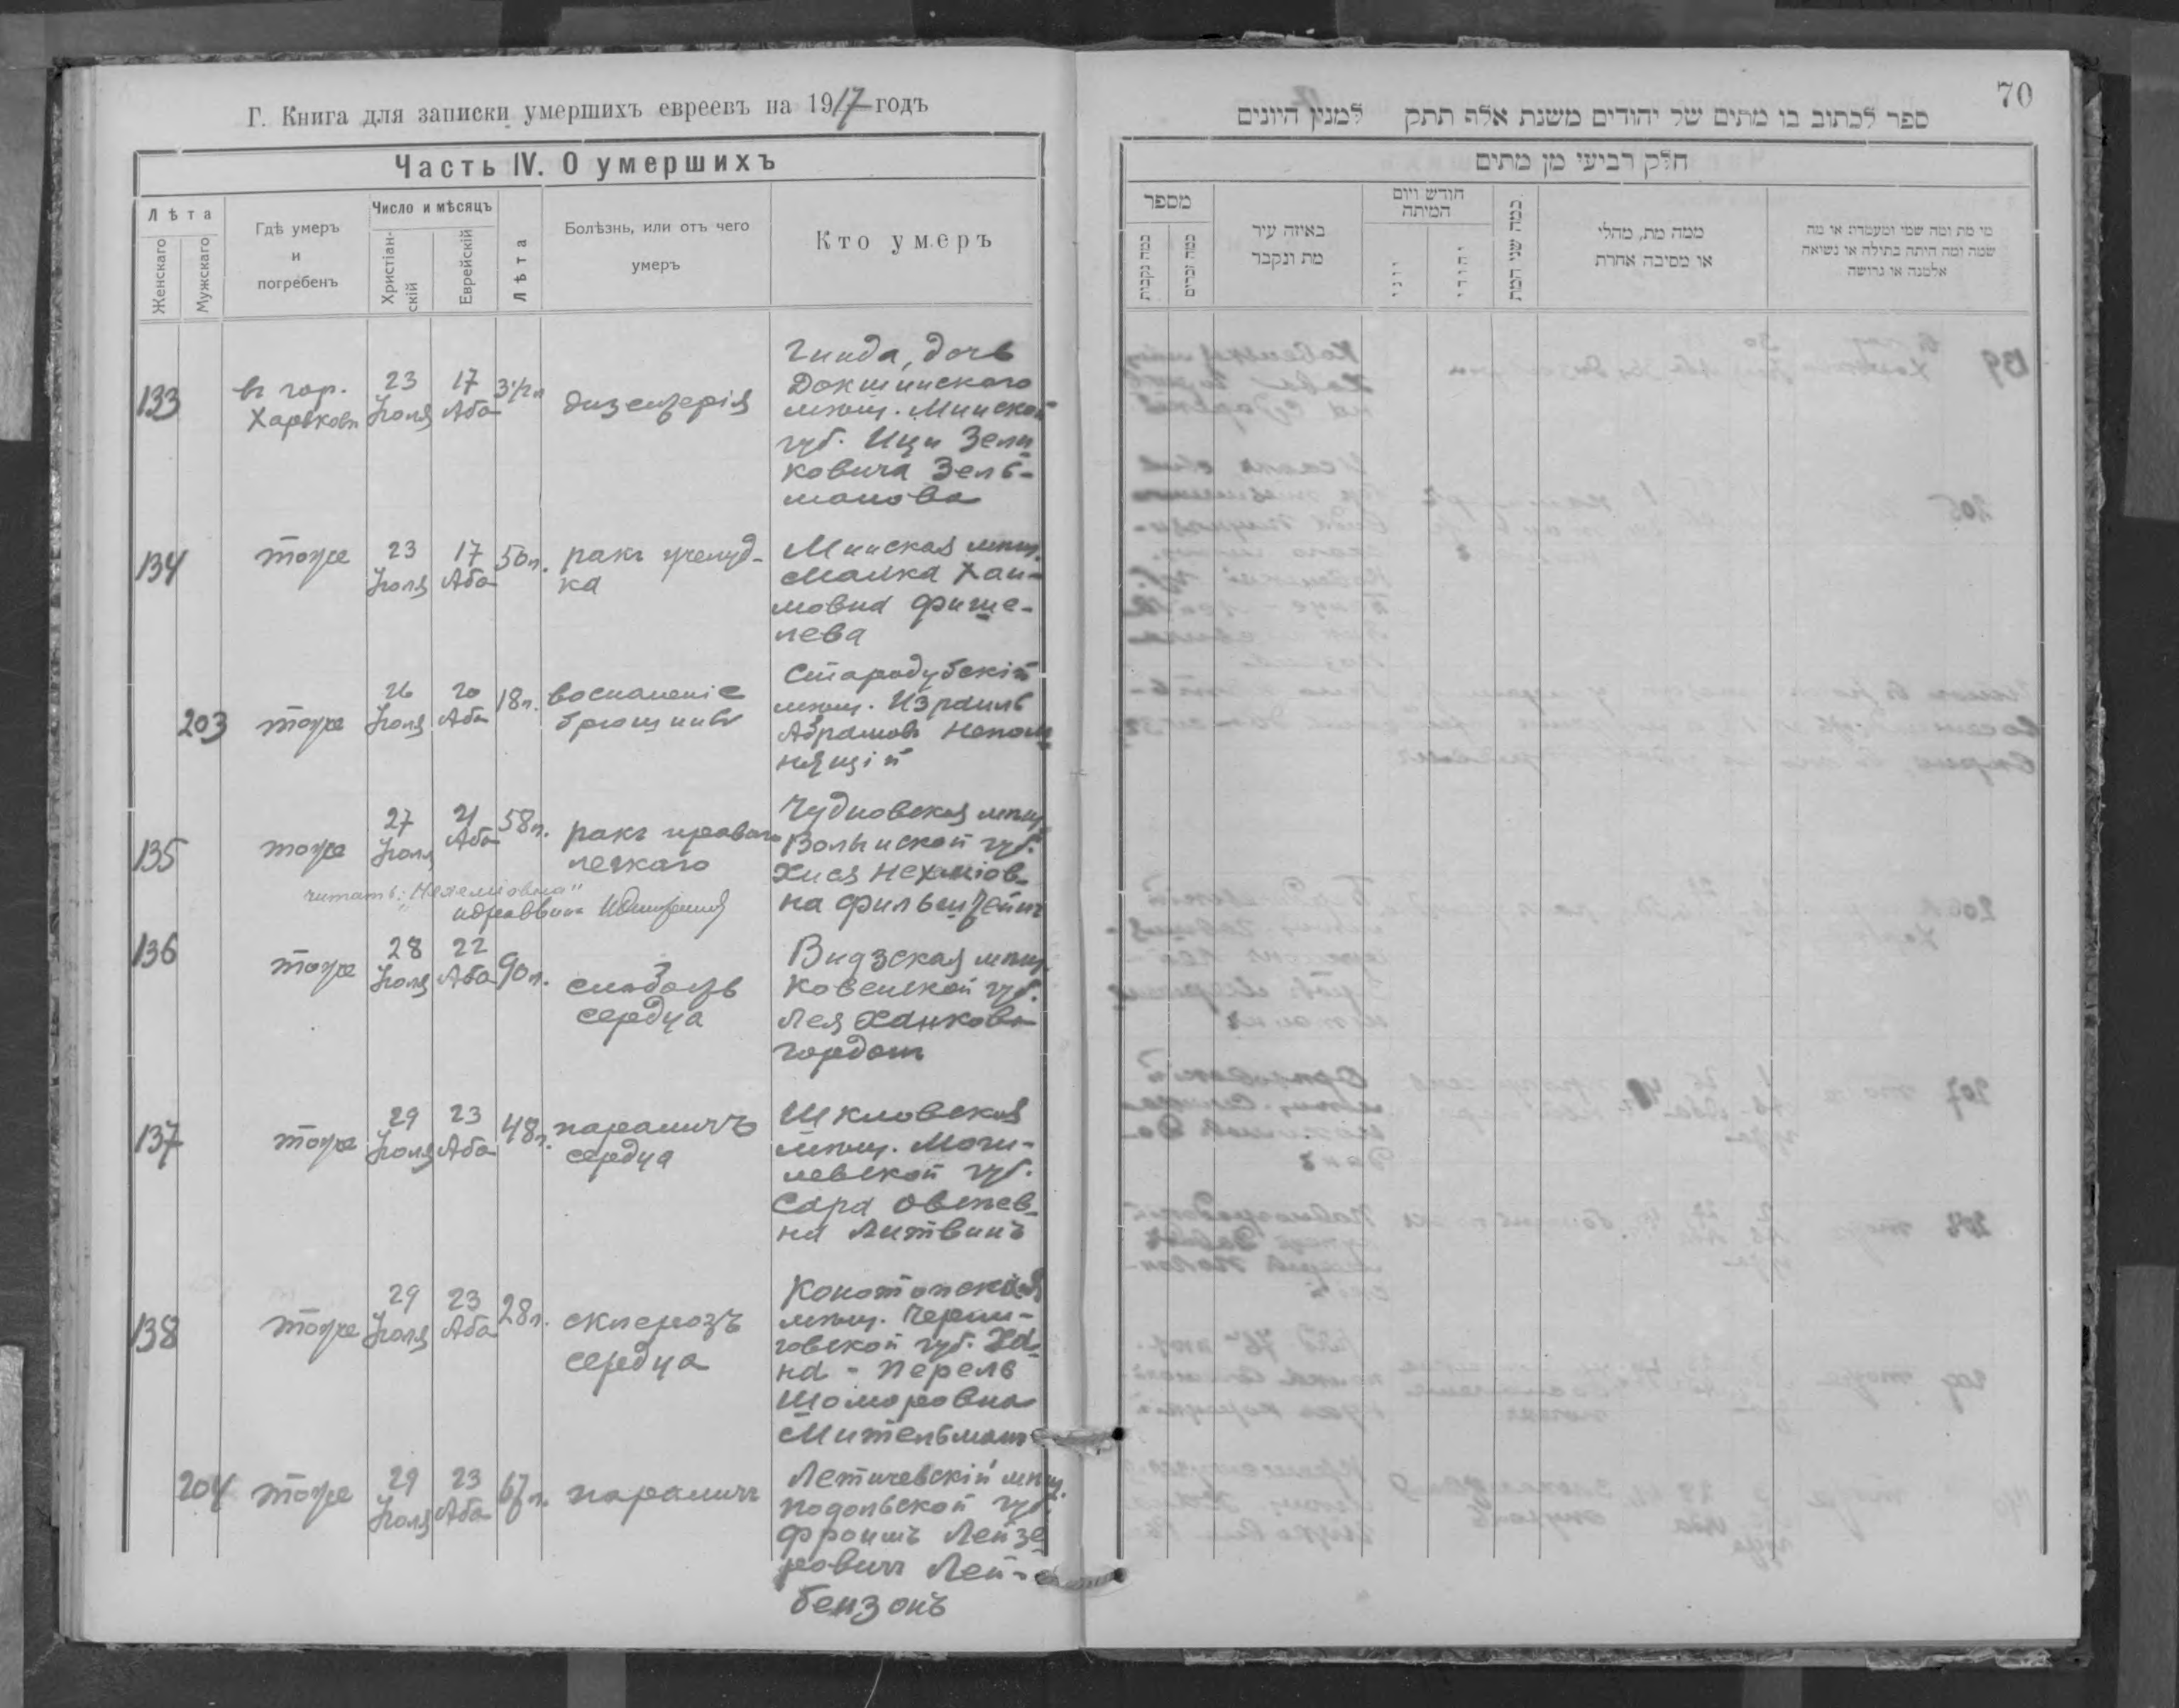 Г. Книга для записки умершихъ евреевъ на 1917 годъ
Часть IV. О умершихъ
Лѣта
Женскаго
Мужскаго
Гдѣ умеръ
и
погребенъ
Число и мѣсяцъ
Христіан-
скій
Еврейскій
Лѣта
Болѣзнь, или отъ чего
умеръ
Кто умеръ
133
въ гор.
Харьковѣ
23
Іюля
17
Аба
3½ л
дизентерія
Гинда, дочь
Докшицского
мѣщ. Минской
губ. Ици Зели
ковича Зель-
манова
134
тоже
23
Іюля
17
Аба
50 л.
ракъ желуд-
ка
Минская мѣщ.
Малка Хаи-
мовна Фише-
лева
203
тоже
26
Іюля
20
Аба
18 л.
воспаленіе
брюшины
Стародубскій
мѣщ. Израиль
Абрамовъ Непом
нящій
135
тоже
27
Іюля
21
Аба
58 л.
ракъ праваго
легкаго
Чудновская мѣщ.
Волынской губ.
Хися Нехміов-
на Фильштейнъ
читать: „Нехеміовна"
136
тоже
28
Іюля
22
Аба
90 л.
слабость
сердца
Видзская мѣщ.
Ковенской губ.
Лея Ханкова
Гордонъ
137
тоже
29
Іюля
23
Аба
48 л.
параличъ
сердца
Шкловская
мѣщ. Моги-
левской губ.
Сара Овсеев-
на Литвинъ
138
тоже
29
Іюля
23
Аба
28 л.
склерозъ
сердца
Конотопская
мѣщ. Черни-
говской губ. Ха-
на - Перель
Шомеровна
Мительманъ
204
тоже
29
Іюля
23
Аба
67 л.
параличъ
Летичевскій мѣщ.
Подольской губ.
Фроимъ Лейзе
ровичъ Лей-
бензонъ
70
ספר לכתוב בו מתים של יהודים משנת אלף תתק למנין היונים
חלק רביעי מן מתים
מספר
כמה נקבות
כמה זכרים
באיזה עיר
מת ונקבר
חודש ויום
המיתה
יוני
יהודי
כמה שני המת
ממה מת, מחלי
או מסיבה אחרת
מי מת ומה שמו ומעמדו או מה
שמה ומה היתה בתולה או נשואה
אלמנה או גרושה